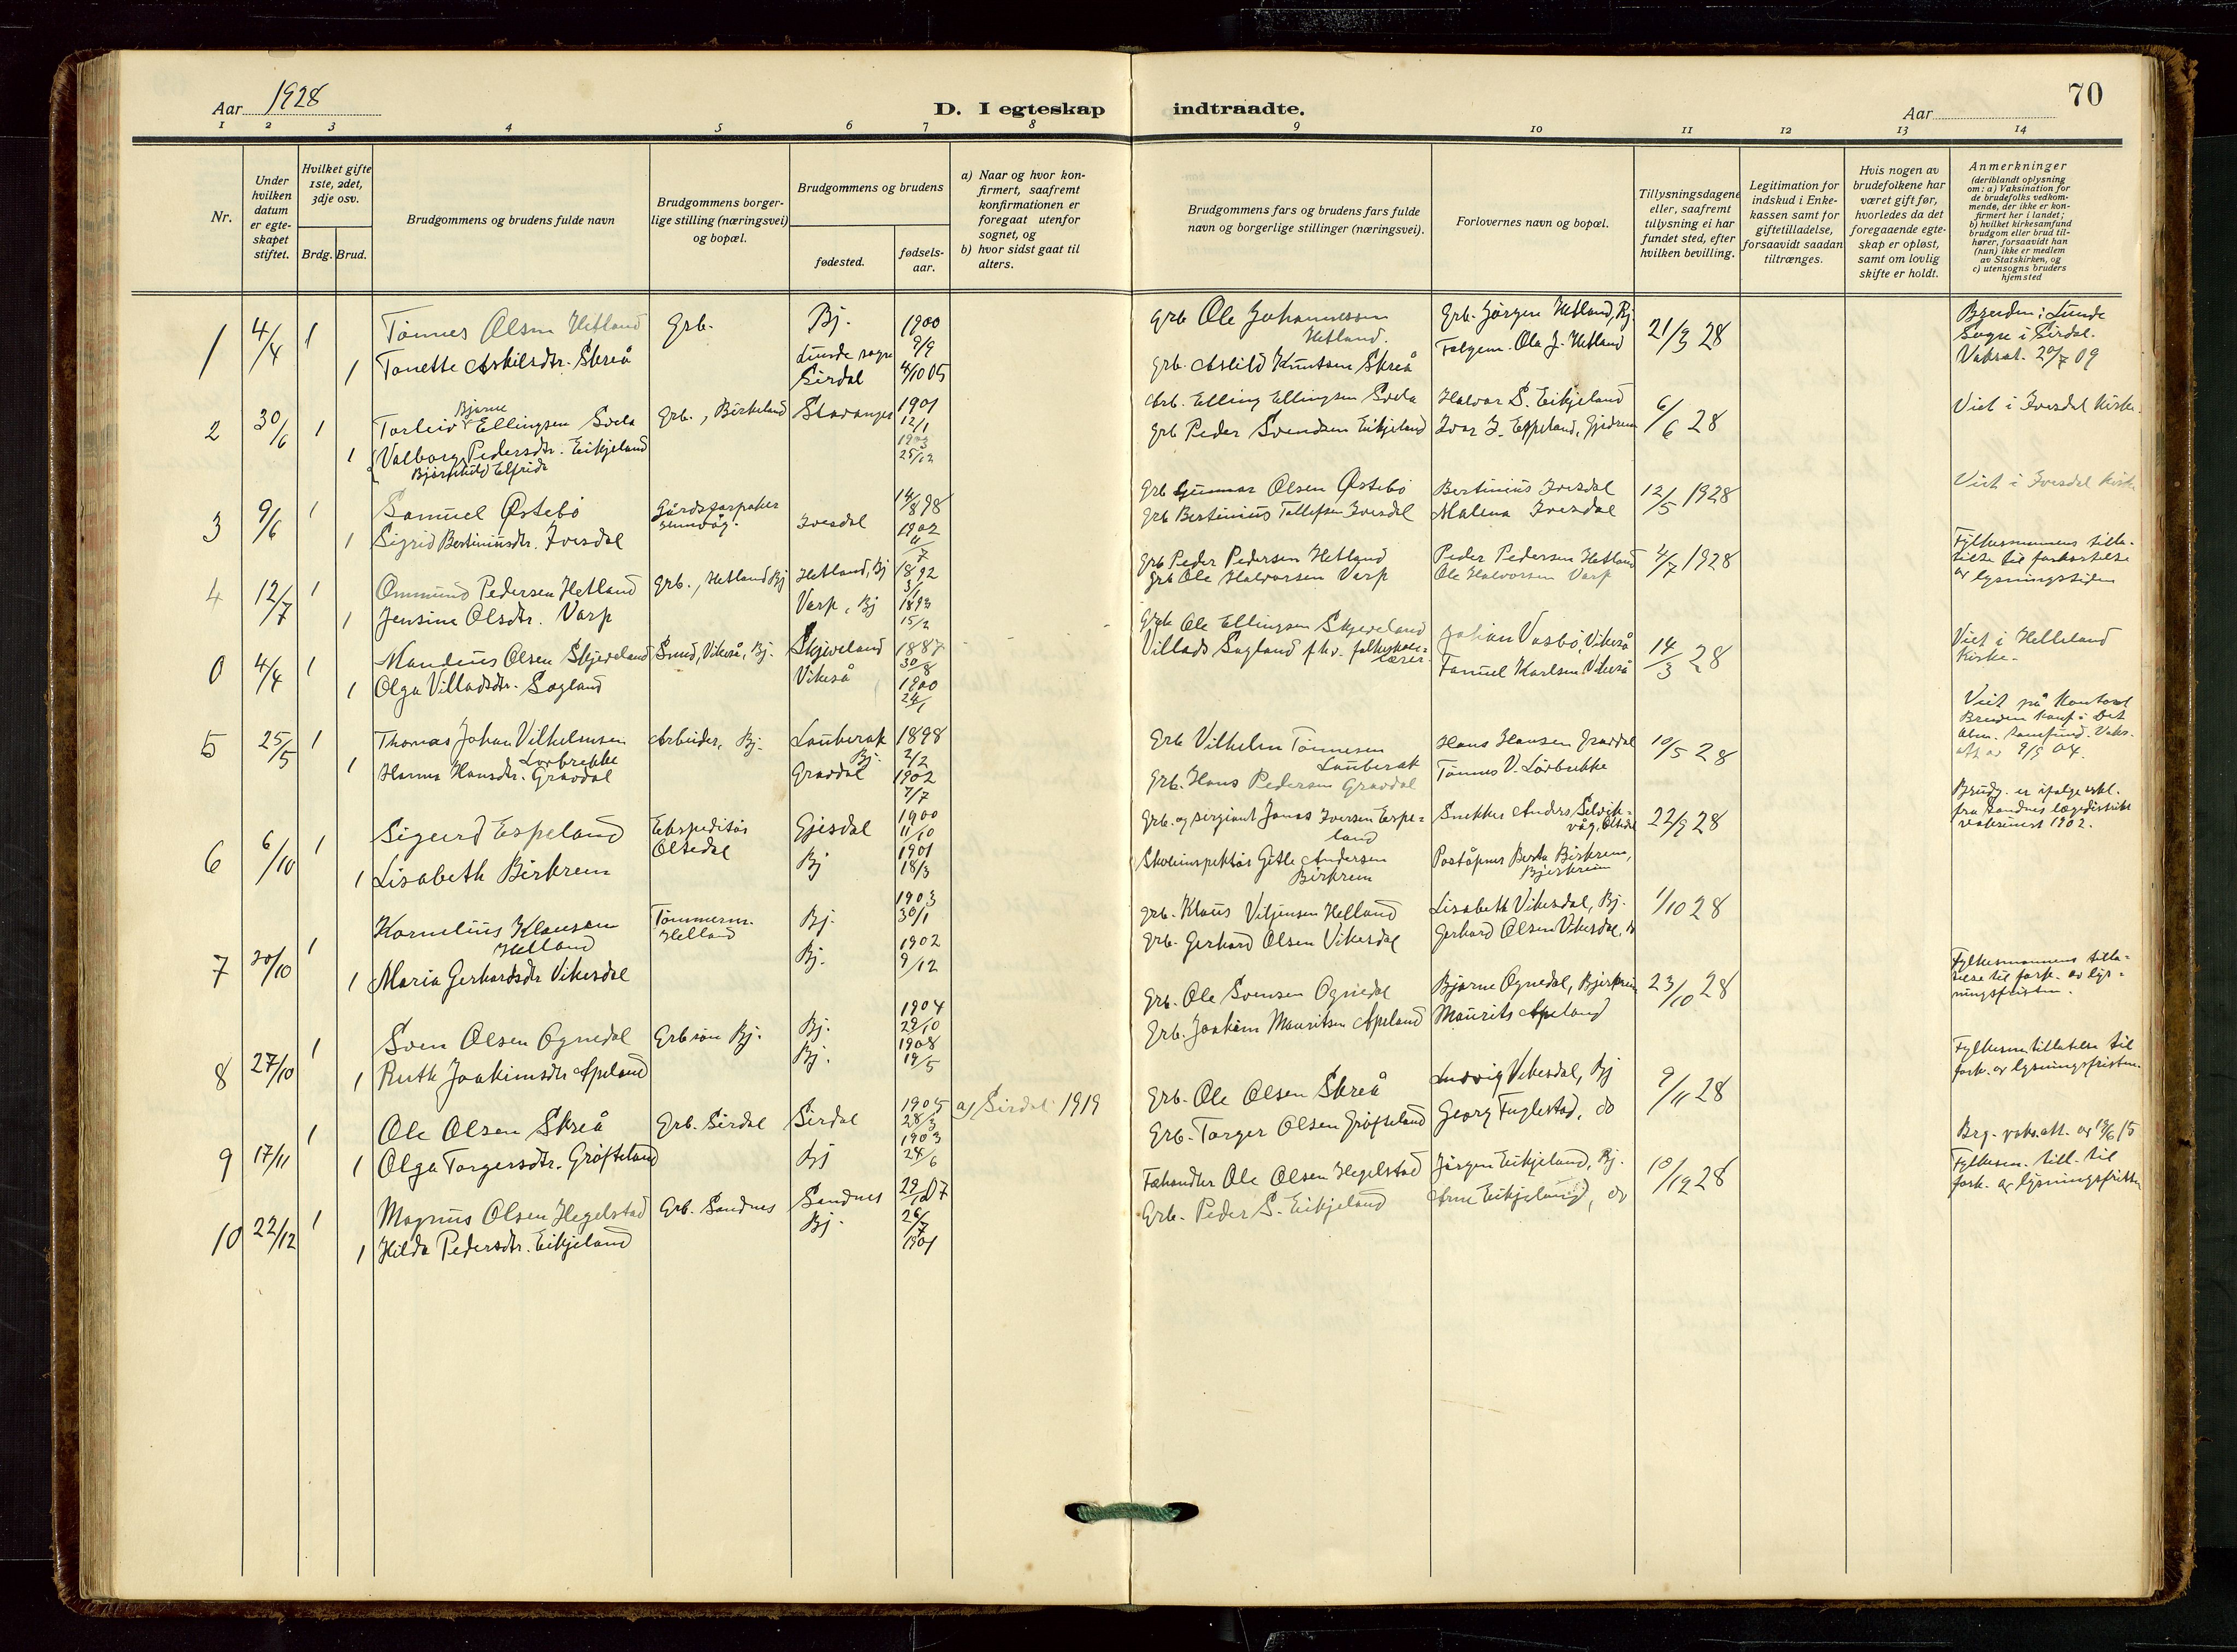 70
Aar 1928
D. I egteskap indtraadte.
Aar
1 2 3 4 5 6 7 8 9 10 11 12 13 14
Nr.
Under hvilken datum er egteskapet stiftet.
Hvilket gifte 1ste, 2det, 3dje osv.
Brdg. Brud.
Brudgommens og brudens fulde navn
Brudgommens borgerlige stilling (næringsvei) og bopæl.
Brudgommens og brudens
fødested.
fødselsaar.
a) Naar og hvor konfirmert, saafremt konfirmationen er foregaat utenfor sognet, og
b) hvor sidst gaat til alters.
Brudgommens fars og brudens fars fulde navn og borgerlige stillinger (næringsvei).
Forlovernes navn og bopæl.
Tillysningsdagene eller, saafremt tillysning ei har fundet sted, efter hvilken bevilling.
Legitimation for indskud i Enkekassen samt for giftetilladelse, forsaavidt saadan tiltrænges.
Hvis nogen av brudefolkene har været gift før, hvorledes da det foregaaende egteskap er opløst, samt om lovlig skifte er holdt.
Anmerkninger
(deriblandt oplysning om: a) Vaksination for de brudefolks vedkommende, der ikke er konfirmert her i landet; b) hvilket kirkesamfund brudgom eller brud tilhører, forsaavidt han (hun) ikke er medlem av Statskirken, og c) utensogns bruders hjemsted
1 4/4 1 Tönnes Olsen Hetland Grb. Bj. 1900 9/9 Grb Ole Johannessen Hetland. Grb. Jörgen Hetland, Bj. 21/3 28 Bruden i Lunde Sogn i Sirdal. Vaksat. 20/7 09
1 Tonette Askilsdtr. Skreå Lunde sogn Sirdal 4/10 05 Grb. Askild Knutsen Skreå Ola J. Hetland
2 30/6 1 Torleiv Bjarne Ellingsen Svela Grb., Birkeland Stavanger 1901 12/1 Arb. Elling Ellingsen Svela Halvor S. Eikjeland 6/6 28 Viet i Ivesdal Kirke.
1 Valborg Pedersdtr. Eikjeland 25/12 Grb Peder Svendsen Eikjeland Ivar I. Espeland, Gjedrem
3 9/6 1 Samuel Östebö Gårdsforpakter 14/8 98 Grb Gunnar Olsen Östebö Bertinius Ivesdal 12/5 1928 Viet i Ivesdal Kirke
1 Sigrid Bertiniusdtr. Ivesdal Ivesdal 1902 Grb Bertinius Tollefsen Ivesdal Malena Ivesdal
4 12/7 1 Ommund Pedersen Hetland Grb., Hetland Bj Hetland, Bj 1892 Grb Peder Pedersen Hetland Peder Pedersen Hetland 4/7 1928 Fylkesmannens tillatelse til forkortelse av lysningstiden
1 Jensine Olsdtr. Varp Varp, Bj 1893 15/2 Grb Ole Halvorsen Varp Ole Halvorsen Varp
0 4/4 1 Mandius Olsen Skjeveland Smed, Vikeså, Bj. Skjeveland 1887 30/8 Grb Ole Ellingsen Skjeveland Johan Vasbö, Vikeså 14/3 28 Viet i Helleland Kirke.
1 Olga Villadsdtr. Sagland Vikeså 1900 24/1 Villads Sagland fhv. folkeskolelærer. Samuel Karlsen Vikeså
5 25/5 1 Thomas Johan Vilhelmsen Lovbrekke Arbeider, Bj. Lauberak Bj. 1898 2/2 Grb Vilhelm Tönnesen Lauberak Hans Hansen Gravdal 10/5 28 Viet på Kontoret
1 Hanna Hansdtr. Gravdal Gravdal 1902 7/7 Grb. Hans Pedersen Gravdal Tönnes V. Lovbrekke
6 6/10 1 Sigurd Espeland Ekspeditör Oltedal Gjesdal 1900 11/10 Grb. og sergiant Jonas Iversen Espeland Snekker Anders Selvikvåg, Oltedal 22/9 28 Brudg. er ifølge erkl. fra Sandnes lægedistrikt
1 Lisabeth Birkrem Bj 1901 18/3 Skoleinspektör Gitle Andersen Birkrem Poståpner Berta Birkrem, Bjerkreim
7 20/10 1 Kornelius Klausen Helland Tömmerm. Helland Bj. 1903 30/1 Grb. Klaus Viljensen Helland Lisabeth Vikesdal, Bj. 1/10 28
1 Maria Gerhardsdtr Vikesdal Bj. 1902 9/12 Grb. Gerhard Olsen Vikesdal Gerhard Olsen Vikesdal,
8 27/10 1 Sven Olsen Ognedal Grbsön Bj. Bj. 1904 29/10 Grb. Ole Svensen Ognedal Bjarne Ognedal, Bjerkreim 23/10 28 Fylkesmannens tillatelse til fork. av lysningsfristen.
1 Ruth Joakimsdtr Apeland Bj. 1908 19/5 Grb. Joakim Mauritsen Apeland Maurits Apeland
9 17/11 1 Ole Olsen Skreå Grb. Sirdal Sirdal 1905 28/3 a) Sirdal 1919 Grb. Ole Olsen Skreå Ludvig Vikesdal, Bj 9/11 28 Fylkesm tillatelse til fork. av lysningsfristen
1 Olga Torgersdtr. Gröfteland Bj 1903 24/6 Grb. Torger Olsen Gröfteland Georg Fuglestad, do
10 22/12 1 Magnus Olsen Hegelstad Grb. Sandnes Sandnes Fehandler Ole Olsen Hegelstad Jörgen Eikjeland, Bj. 10/12 28 Fylkesm. till. til fork. av lysningsfristen
1 Hilda Pedersdtr. Eikjeland Bj. 26/7 1901 Grb. Peder S. Eikjeland Arne Eikjeland, do